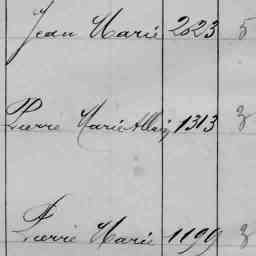 Jean Marie 2023 5
Pierre Marie Albin 1313 3
Pierre Marie 1199 3